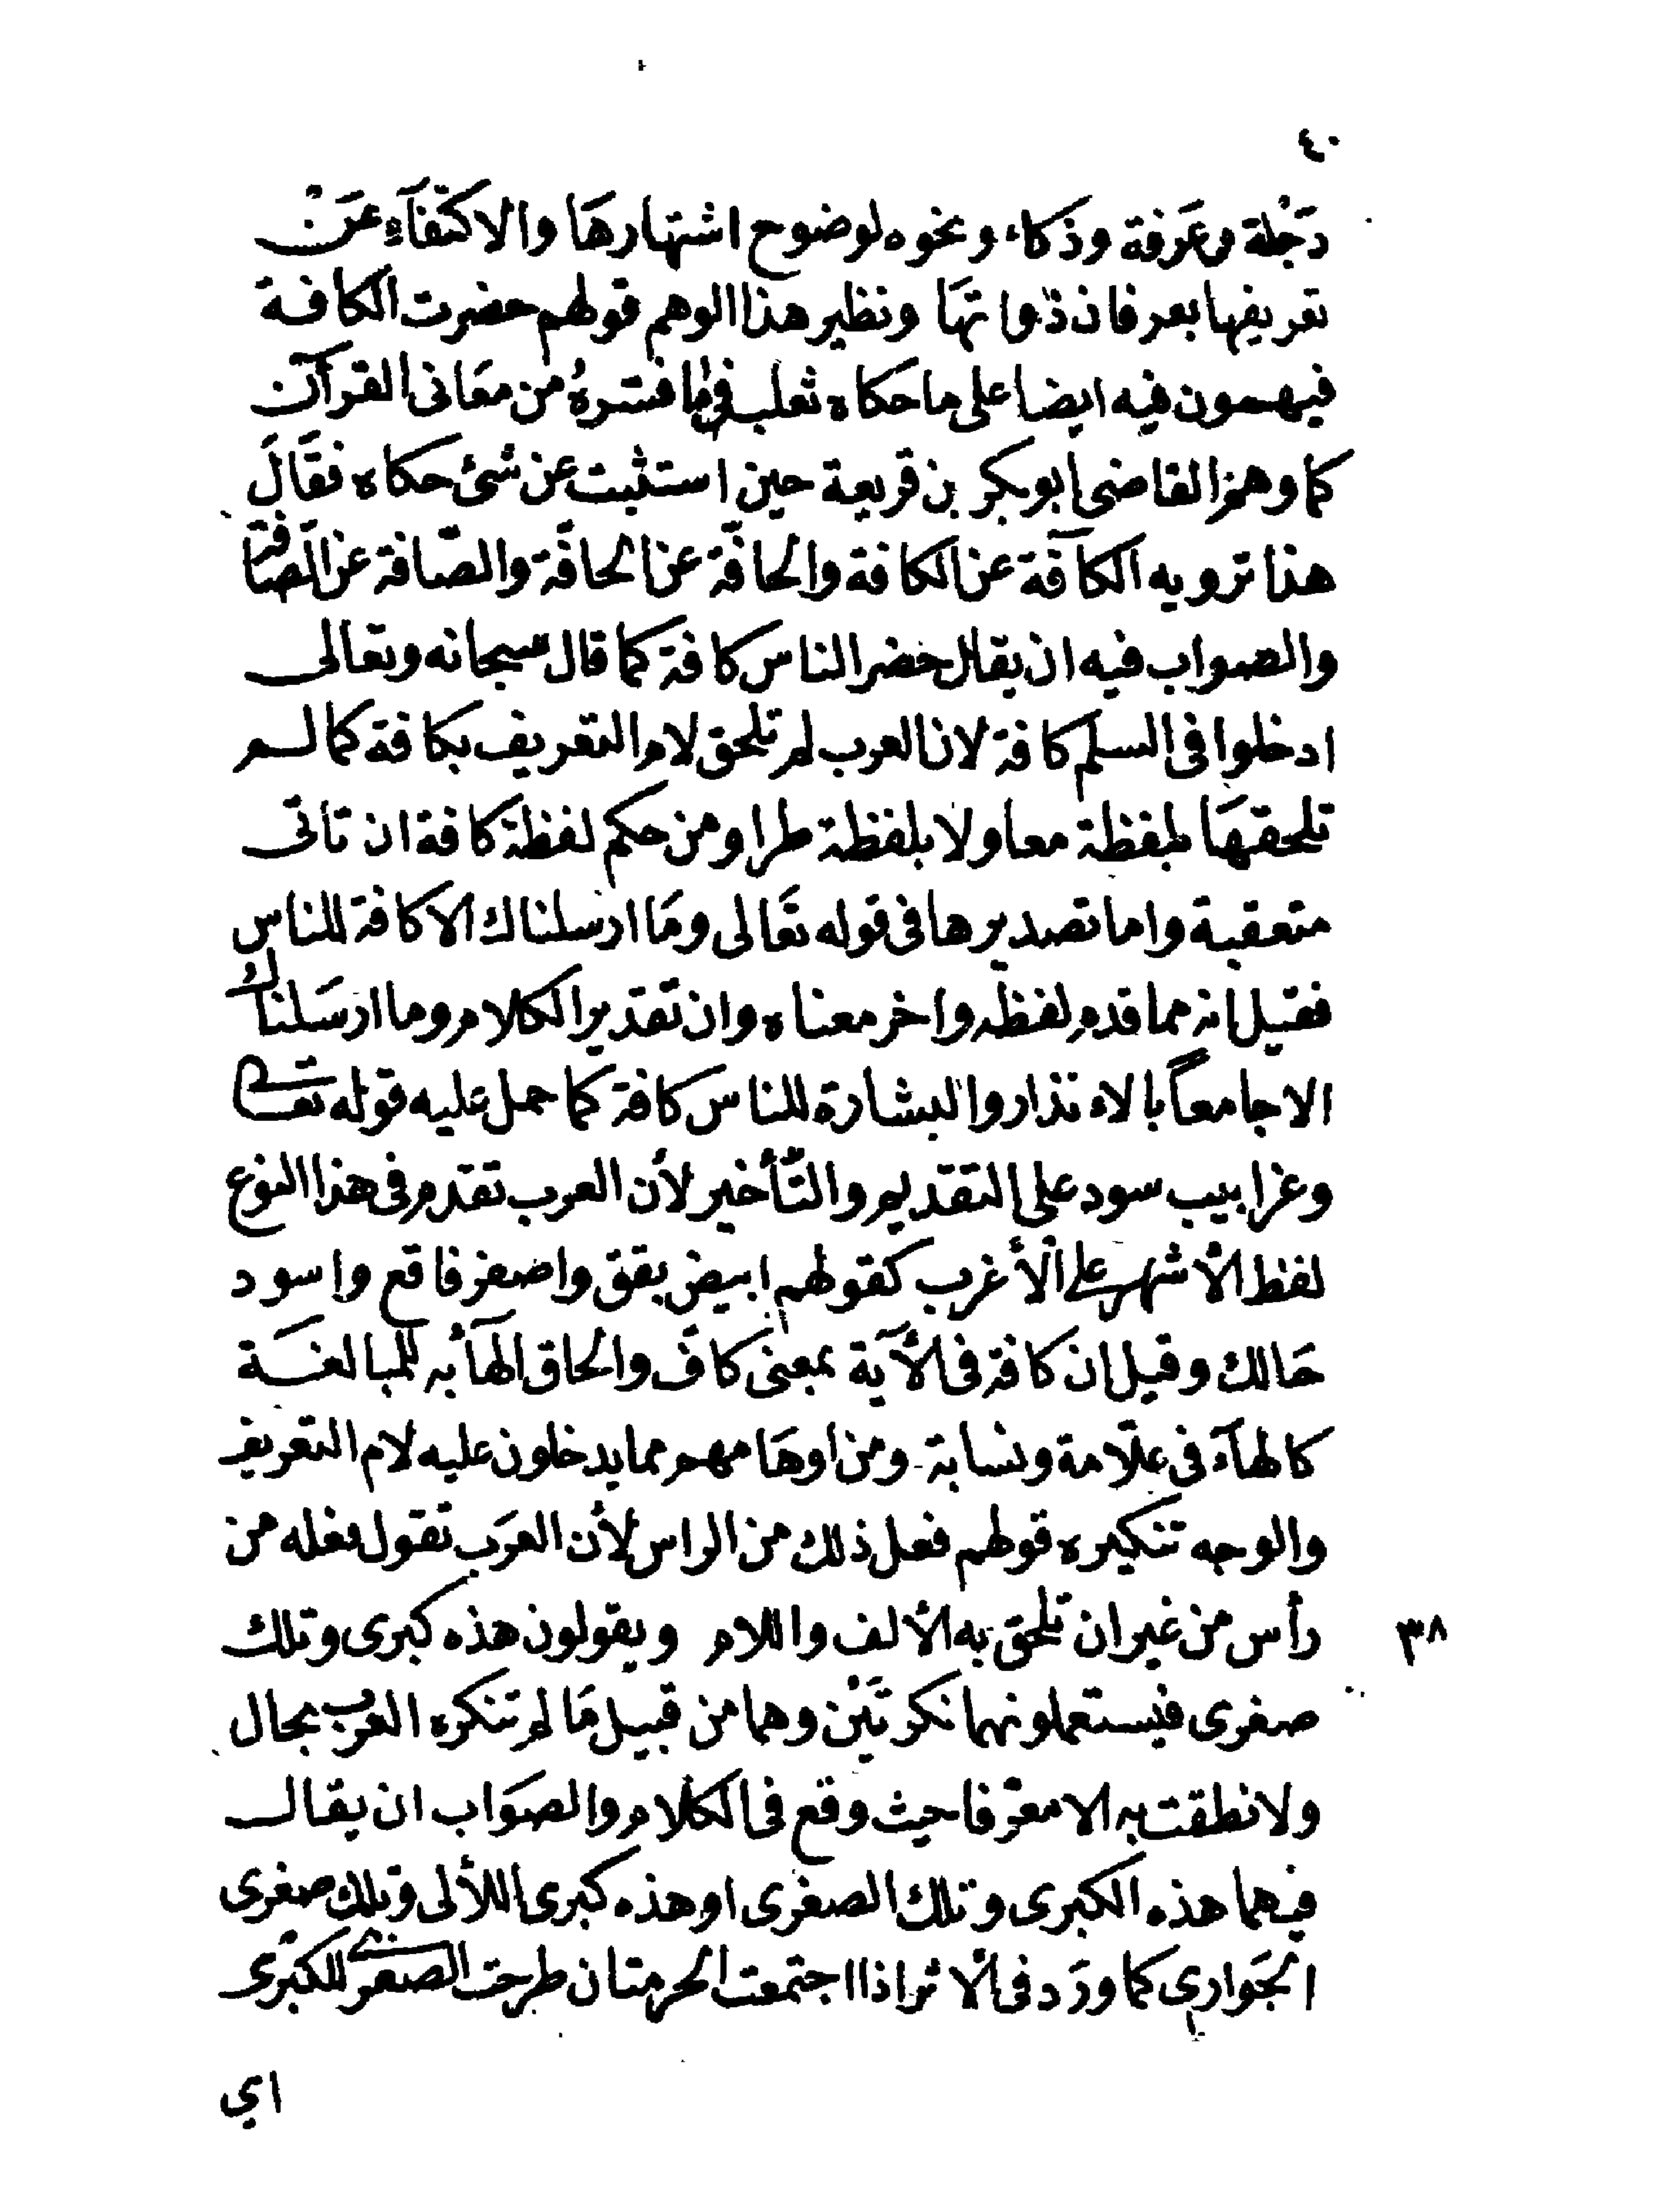 ٤٠
دَجْلة وعَرَفة وذكاء ونحوه لوضوح اشتهارهَا والاكتفآءِ عَنْ
تعريفها بعرفان ذواتهَا ونظير هذا الوهم قولهم حضرت الكافة
فيهمون فيه ايضا على ما حكاه ثعلب فيما فسّرهُ من معَانى القرآن
كما وهم القاضى ابو بكر بن قريعة حين استثبت عن شئ حكاه فقَالَ
هذا ترويه الكآفّة عن الكافة والحافّة عن الحافّة والصّافة عن الصّافّة
والصواب فيه ان يقال حضر الناس كافة كما قال سبحانه وتعالى
ادخلوا فى السلم كافة لان العرب لم تلحق لام التعريف بكافة كما لم
تلحقهَا بلفظة معا ولا بلفظة طرا ومن حكم لفظة كافة ان تاتى
متعقبة واما تصديرها فى قوله تعَالى ومَا ارسلناك الا كافة للناس
فقيل انه مما قدم لفظه واخر معناه وان تقدير الكلام وما ارسَلناك
الا جامعاً بالانذار والبشارة للناس كافة كما حمل عليه قوله تعالى
وغرابيب سود على التقديم والتّأخير لأن العرب تقدم فى هذا النوع
لفظ الأشهر على الأغرب كقولهم ابيض يقق واصفر فاقع واسود
حَالك وقيل ان كافة فى الآية بمعنى كافّ والحاق الهآء به للمبالغَة
كالهآء فى علاّمة ونسابة ومن اوهَامهم مما يدخلون عليه لام التعريف
والوجه تنكيره قولهم فعل ذلك من الراس لأن العرَب تقول فعله من
رأس من غير ان تلحق به الألف واللام ويقولون هذه كبرى وتلك
٣٨
صغرى فيستعملونهما نكرتَيْن وهما من قبيل مَا لم تنكره العرب بحال
ولا نطقت به الا معرّفا حيث وقع فى الكلام والصوَاب ان يقال
فيهما هذه الكبرى وتلك الصغرى او هذه كبرى اللألى وتلك صغرى
الجَوارى كما ورَد فى الأثر اذا اجتمعت الحرمتان طرحت الصغرى للكبْرى
اي